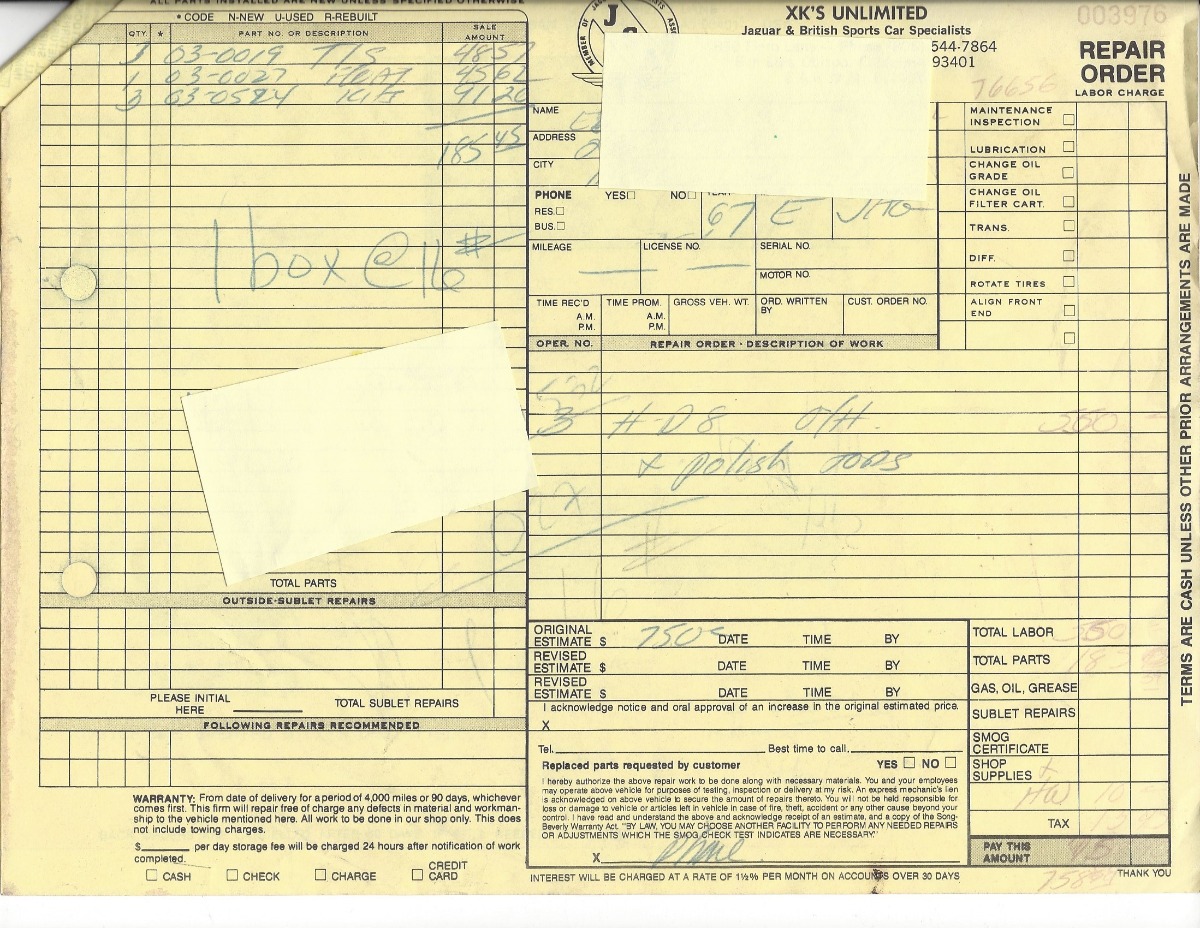 ALL PARTS INSTALLED ARE NEW UNLESS SPECIFIED OTHERWISE
* CODE N-NEW U-USED R-REBUILT
QTY. * PART NO. OR DESCRIPTION SALE AMOUNT
3 03-0019 T/S 4857
1 03-0027 4562
3 03-0524 Kit 9126
185 45
1 box @ 16 #
TOTAL PARTS
OUTSIDE-SUBLET REPAIRS
PLEASE INITIAL HERE TOTAL SUBLET REPAIRS
FOLLOWING REPAIRS RECOMMENDED
WARRANTY: From date of delivery for a period of 4,000 miles or 90 days, whichever
comes first. This firm will repair free of charge any defects in material and workman-
ship to the vehicle mentioned here. All work to be done in our shop only. This does
not include towing charges.
$ per day storage fee will be charged 24 hours after notification of work
completed.
CASH CHECK CHARGE CREDIT CARD
MEMBER OF
J
XK'S UNLIMITED
Jaguar & British Sports Car Specialists
544-7864
93401
003976
REPAIR
ORDER
LABOR CHARGE
76656
NAME
ADDRESS
CITY
PHONE YES NO
RES.
BUS.
67 E JAG
MILEAGE LICENSE NO. SERIAL NO.
MOTOR NO.
TIME REC'D A.M. P.M. TIME PROM. A.M. P.M. GROSS VEH. WT. ORD. WRITTEN BY CUST. ORDER NO.
MAINTENANCE INSPECTION
LUBRICATION
CHANGE OIL GRADE
CHANGE OIL FILTER CART.
TRANS.
DIFF.
ROTATE TIRES
ALIGN FRONT END
OPER. NO. REPAIR ORDER · DESCRIPTION OF WORK
3 H-D8 O/H. 550
+ polish tops
ORIGINAL ESTIMATE $ 750 DATE TIME BY
REVISED ESTIMATE $ DATE TIME BY
REVISED ESTIMATE $ DATE TIME BY
I acknowledge notice and oral approval of an increase in the original estimated price.
X
Tel. Best time to call,
Replaced parts requested by customer YES NO
I hereby authorize the above repair work to be done along with necessary materials. You and your employees
may operate above vehicle for purposes of testing, inspection or delivery at my risk. An express mechanic's lien
is acknowledged on above vehicle to secure the amount of repairs thereto. You will not be held responsible for
loss or damage to vehicle or articles left in vehicle in case of fire, theft, accident or any other cause beyond your
control. I have read and understand the above and acknowledge receipt of an estimate, and a copy of the Song-
Beverly Warranty Act. "BY LAW, YOU MAY CHOOSE ANOTHER FACILITY TO PERFORM ANY NEEDED REPAIRS
OR ADJUSTMENTS WHICH THE SMOG CHECK TEST INDICATES ARE NECESSARY."
X Phone
INTEREST WILL BE CHARGED AT A RATE OF 1½% PER MONTH ON ACCOUNTS OVER 30 DAYS
TOTAL LABOR 550
TOTAL PARTS 185
GAS, OIL, GREASE
SUBLET REPAIRS
SMOG CERTIFICATE
SHOP SUPPLIES
TAX
PAY THIS AMOUNT
THANK YOU
TERMS ARE CASH UNLESS OTHER PRIOR ARRANGEMENTS ARE MADE